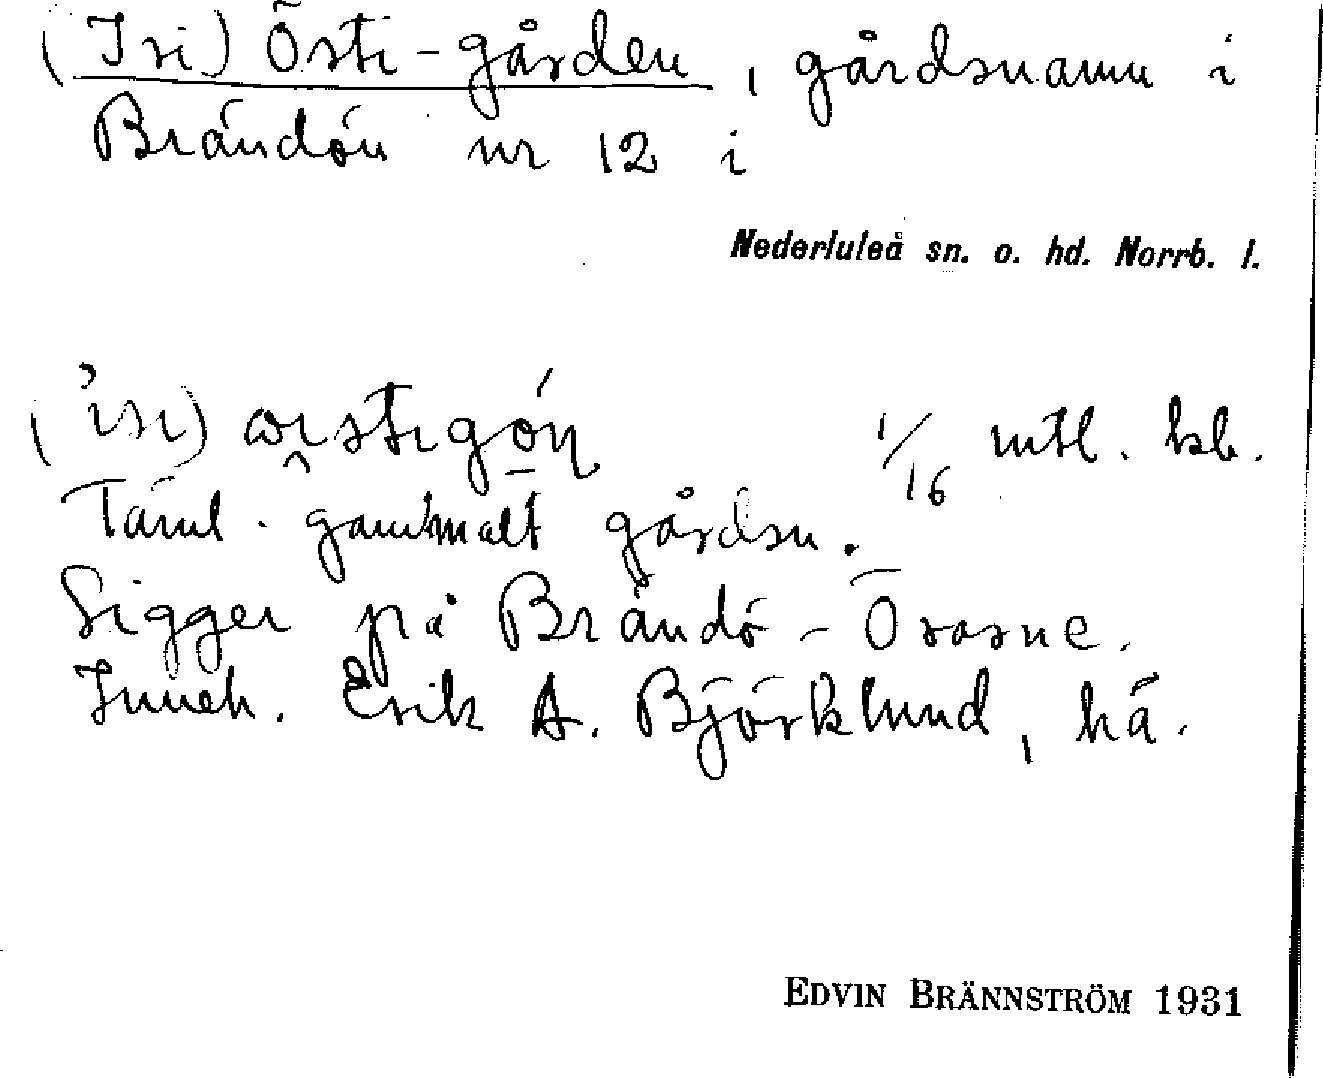 (Isi) Östi-gården, gårdsnamn i
Brändön nr 12 i
Nederluleå sn. o. hd. Norrb. l.
1/16 mtl. kb.
Täml. gammalt gårdsn.
Ligger på Brändö-Örarne.
Inneh. Erik A. Björklund, hä.
EDVIN BRÄNNSTRÖM 1931